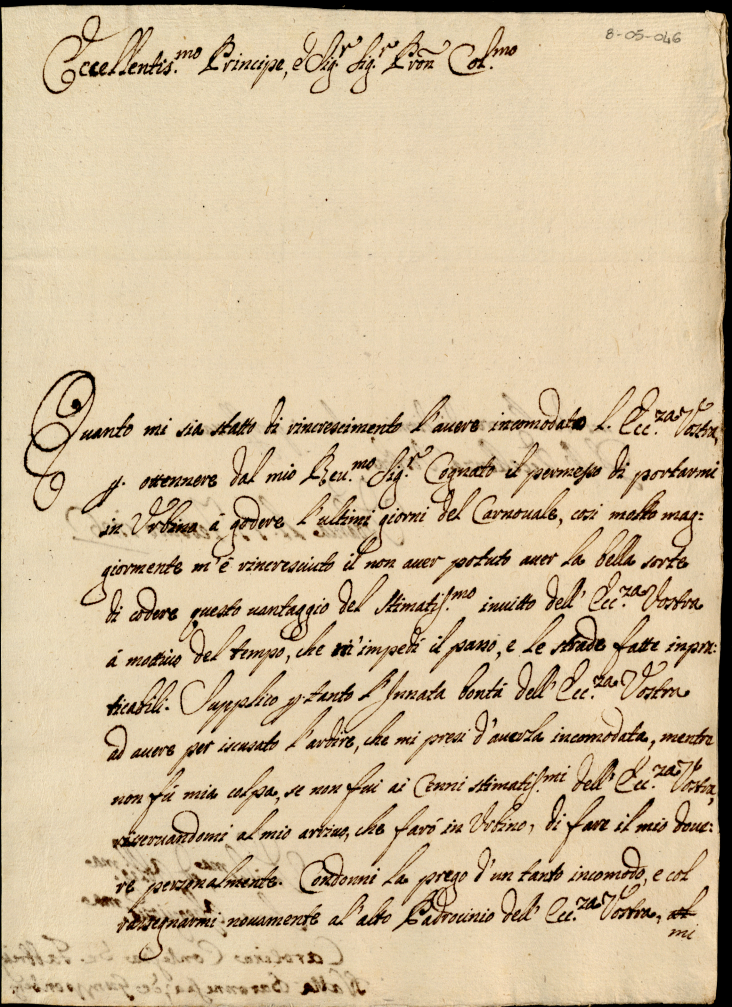 8-05-046
Eccellentis.mo Principe, e Sig.r Sig.r Pron Col.mo
Quanto mi sia statto di rincrescimento l'avere incomodata l. Ecc.za Vostra,
p. ottennere dal mio Reu.mo Sig.r Cognato il permesso di portarmi
in Urbino á godere l'ultimi giorni del Carnouale, così molto mag:
giormente m'é rincresciuto il non auer potuto auer la bella sorte
di godere questo uantaggio del stimatiss.mo inuitto dell' Ecc.za Vostra
á mottivo del tempo, che m'impedí il passo, e le strade fatte inpra:
ticabili. Supplico p. tanto l'Innata bontá dell' Ecc.za Vostra
ad avere per iscusato l'ardire, che mi presi d'auerla incomodata, mentre
non fú mia colpa, se non fui ai Cenni stimatiss.mi dell' Ecc.za Vostra,
riseruandomi al mio arriuo, che faró in Urbino, di fare il mio doue:
re personalmente. Condonni la prego d'un tanto incomodo, e col
rassegnarmi nouamente al'alto Padrocinio dell' Ecc.za Vostra,
mi